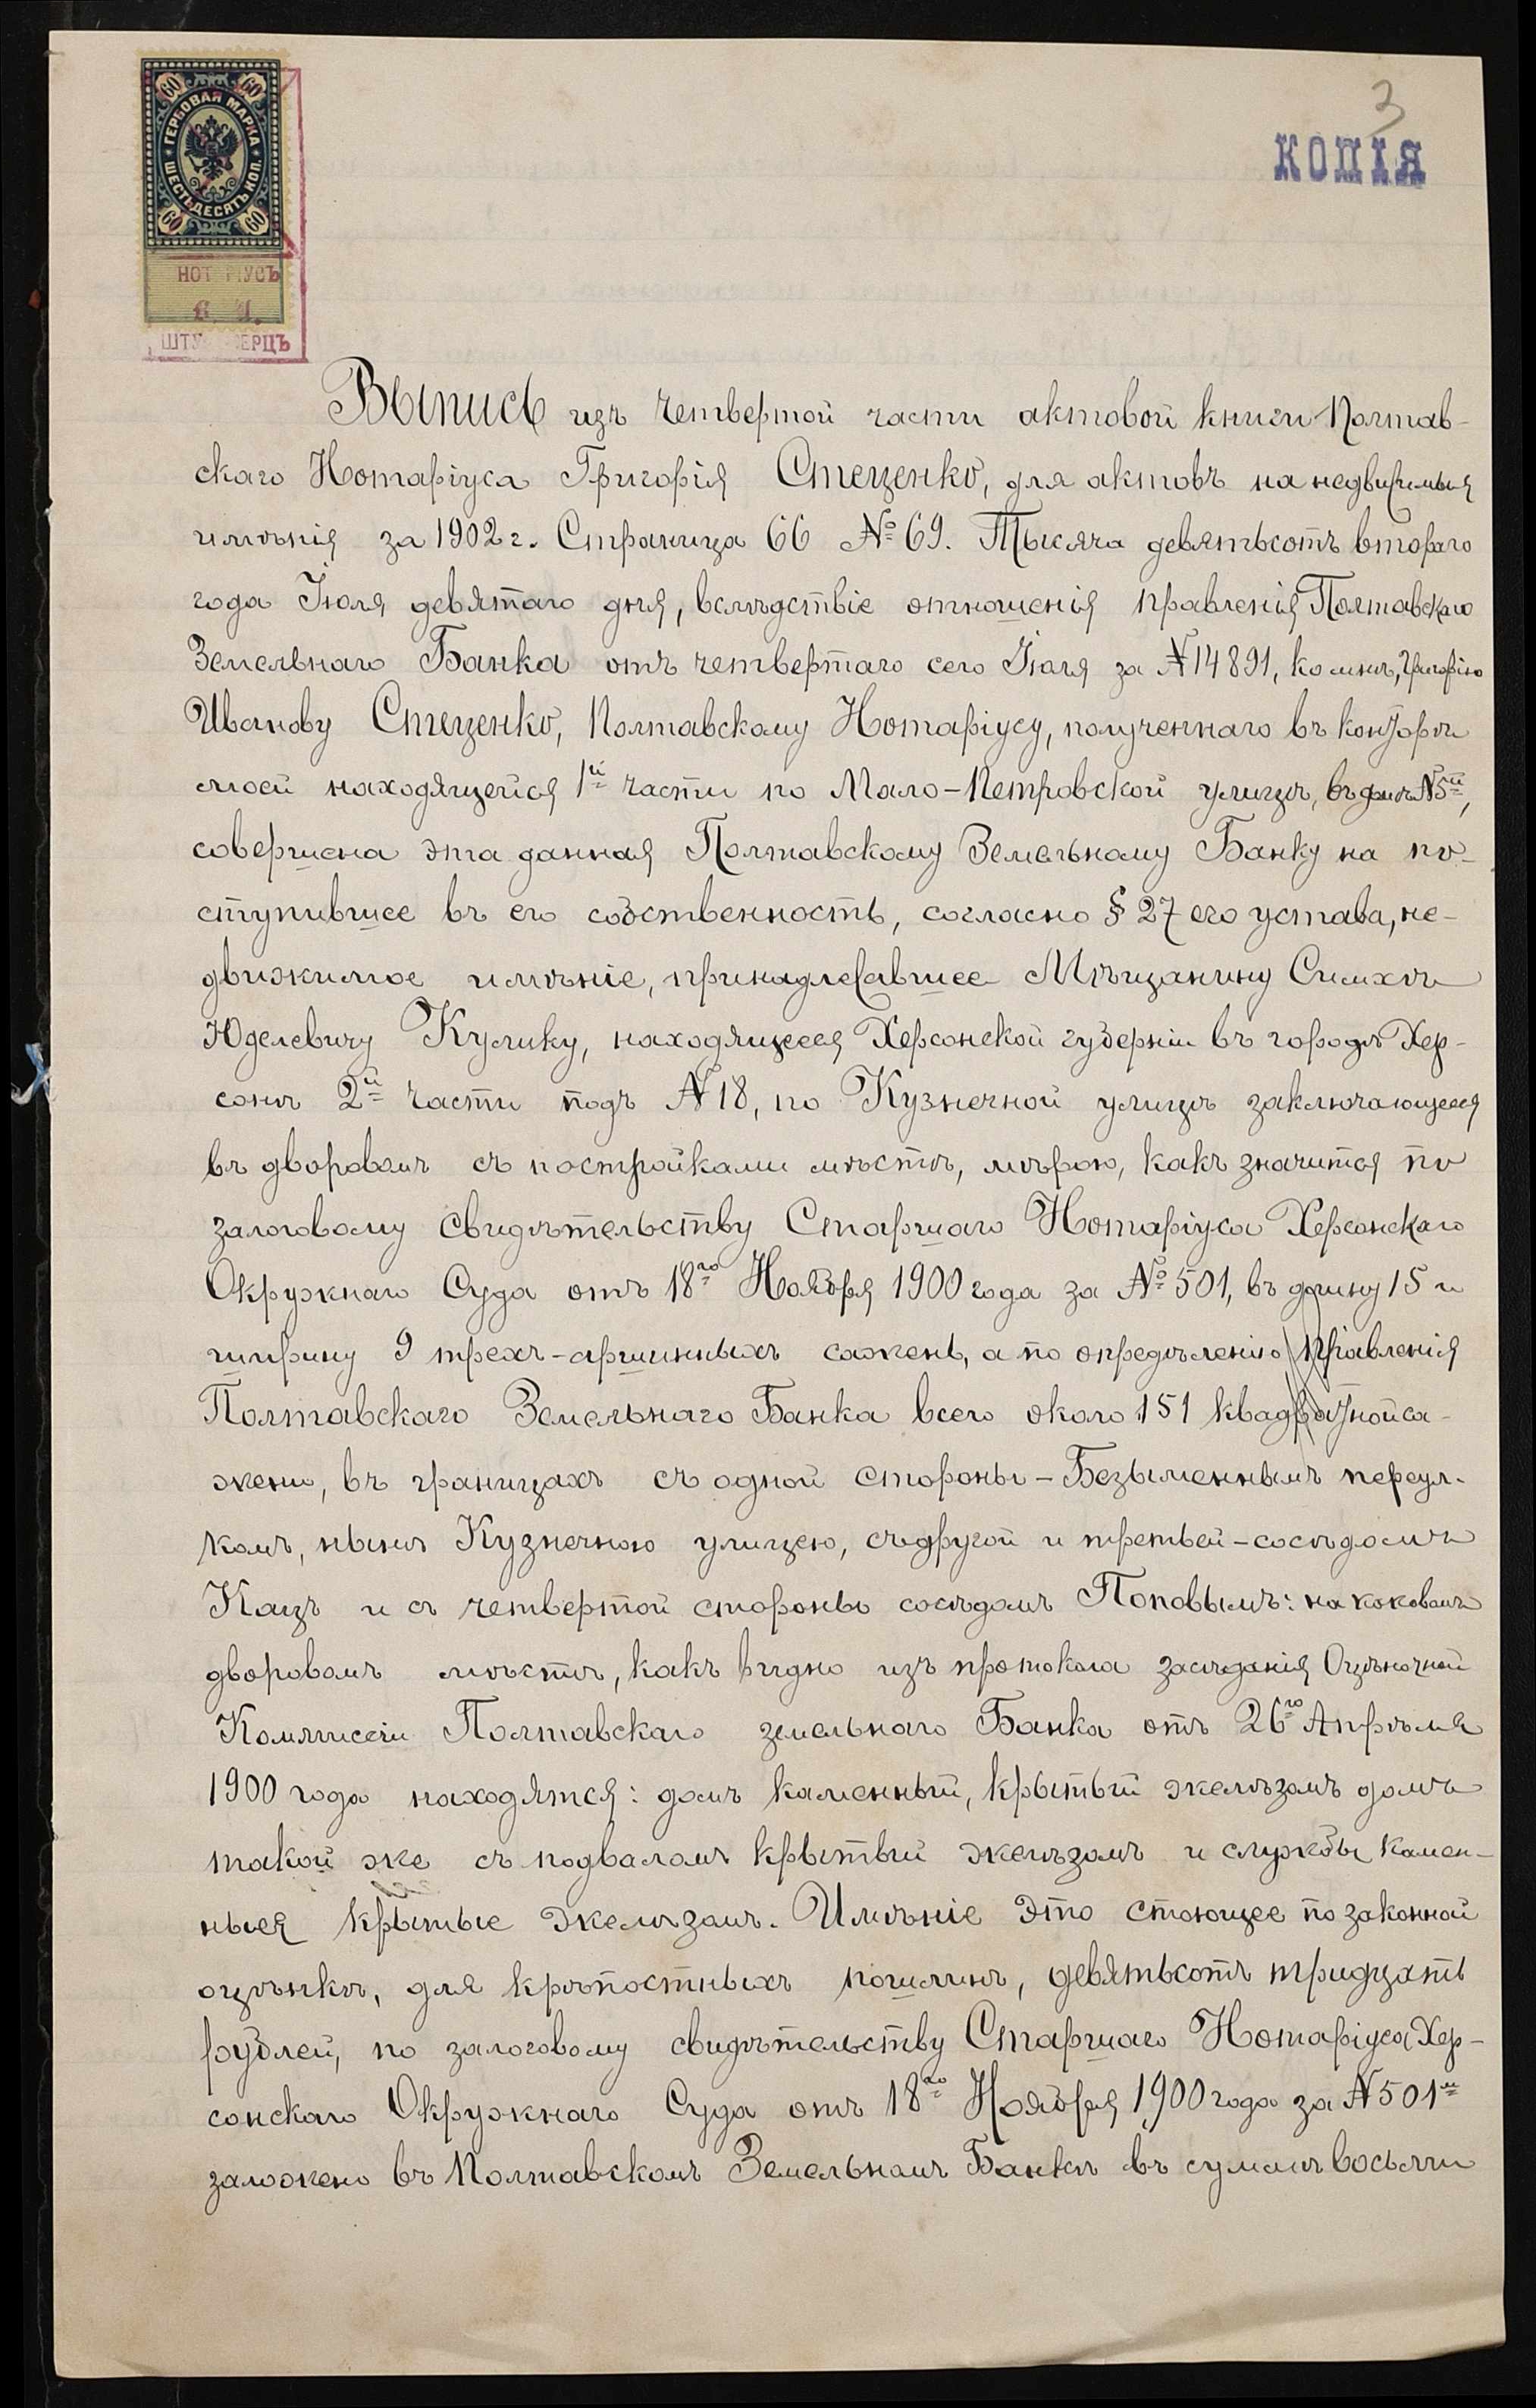 3
КОПІЯ
60 60
ГЕРБОВАЯ МАРКА
ШЕСТЬДЕСЯТЪ КОП.
60 60
НОТ РІУСЪ
ШТУ ЕРЦЪ
Выпись изъ четвертой части актовой книги Полтав-
скаго Нотаріуса Григорія Стеценко, для актовъ на недвижимыя
имѣнія за 1902 г. Страница 66 № 69. Тысяча девятьсотъ второго
года Іюля девятаго дня, вслѣдствіе отношенія правленія Полтавскаго
Земельнаго Банка отъ четвертаго сего Іюля за № 14891, ко мнѣ, Григорію
Иванову Стеценко, Полтавскому Нотаріусу, полученнаго въ конторѣ
моей находящейся 1й части по Мало-Петровской улицѣ, въ домѣ № 5й,
совершена эта данная Полтавскому Земельному Банку на по-
ступившее въ его собственность, согласно § 27 его устава, не-
движимое имѣніе, принадлежавшее Мѣщанину Симхѣ
Юделевичу Кулику, находящееся Херсонской губерніи въ городѣ Хер-
сонѣ 2й части подъ № 18, по Кузнечной улицѣ заключающееся
въ дворовомъ съ постройками мѣстѣ, мѣрою, какъ значится по
залоговому свидѣтельству Старшаго Нотаріуса Херсонскаго
Окружнаго Суда отъ 18го Ноября 1900 года за № 501, въ длину 15 и
ширину 9 трехъ-аршинныхъ сажень, а по опредѣленію Правленія
Полтавскаго Земельнаго Банка всего около 151 квадратной са-
жени, въ границахъ съ одной стороны - Безыменнымъ переул-
комъ, нынѣ Кузнечною улицею, съ другой и третьей - сосѣдомъ
Кацъ и съ четвертой стороны сосѣдомъ Поповымъ: на каковомъ
дворовомъ мѣстѣ, какъ видно изъ протокола засѣданія Оцѣночной
Коммисіи Полтавскаго земельнаго Банка отъ 26го Апрѣля
1900 года находятся: домъ каменный, крытый желѣзомъ домъ
такой же съ подваломъ крытый желѣзомъ и службы камен-
ныея крытые желѣзомъ. Имѣніе это стоющее по законной
оцѣнкѣ, для крѣпостныхъ пошлинъ, девятьсотъ тридцать
рублей, по залоговому свидѣтельству Старшаго Нотаріуса Хер-
сонскаго Окружнаго Суда отъ 18го Ноября 1900 года за № 501м
заложено въ Полтавскомъ Земельномъ Банкѣ въ суммѣ восьми